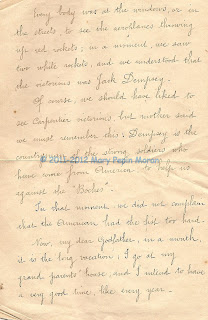 Every body was at the windows, or in
the streets to see the aeroplanes throwing
up red rockets; in a moment, we saw
two white rockets, and we understood that
the victorious was Jack Dempsey.
Of course, we should have liked to
see Carpentier victorious, but mother said
we must remember this: Dempsey is the
© 2011-2012 Mary Pepin Moran
country of the strong soldiers who
have come from America to help us
against the "Boches".
In that moment, we did not complain
that the American had the fist too hard.
Now, my dear Godfather, in a month,
it is the long vacation; I go at my
grand parents' house, and I intend to have
a very good time, like every year.